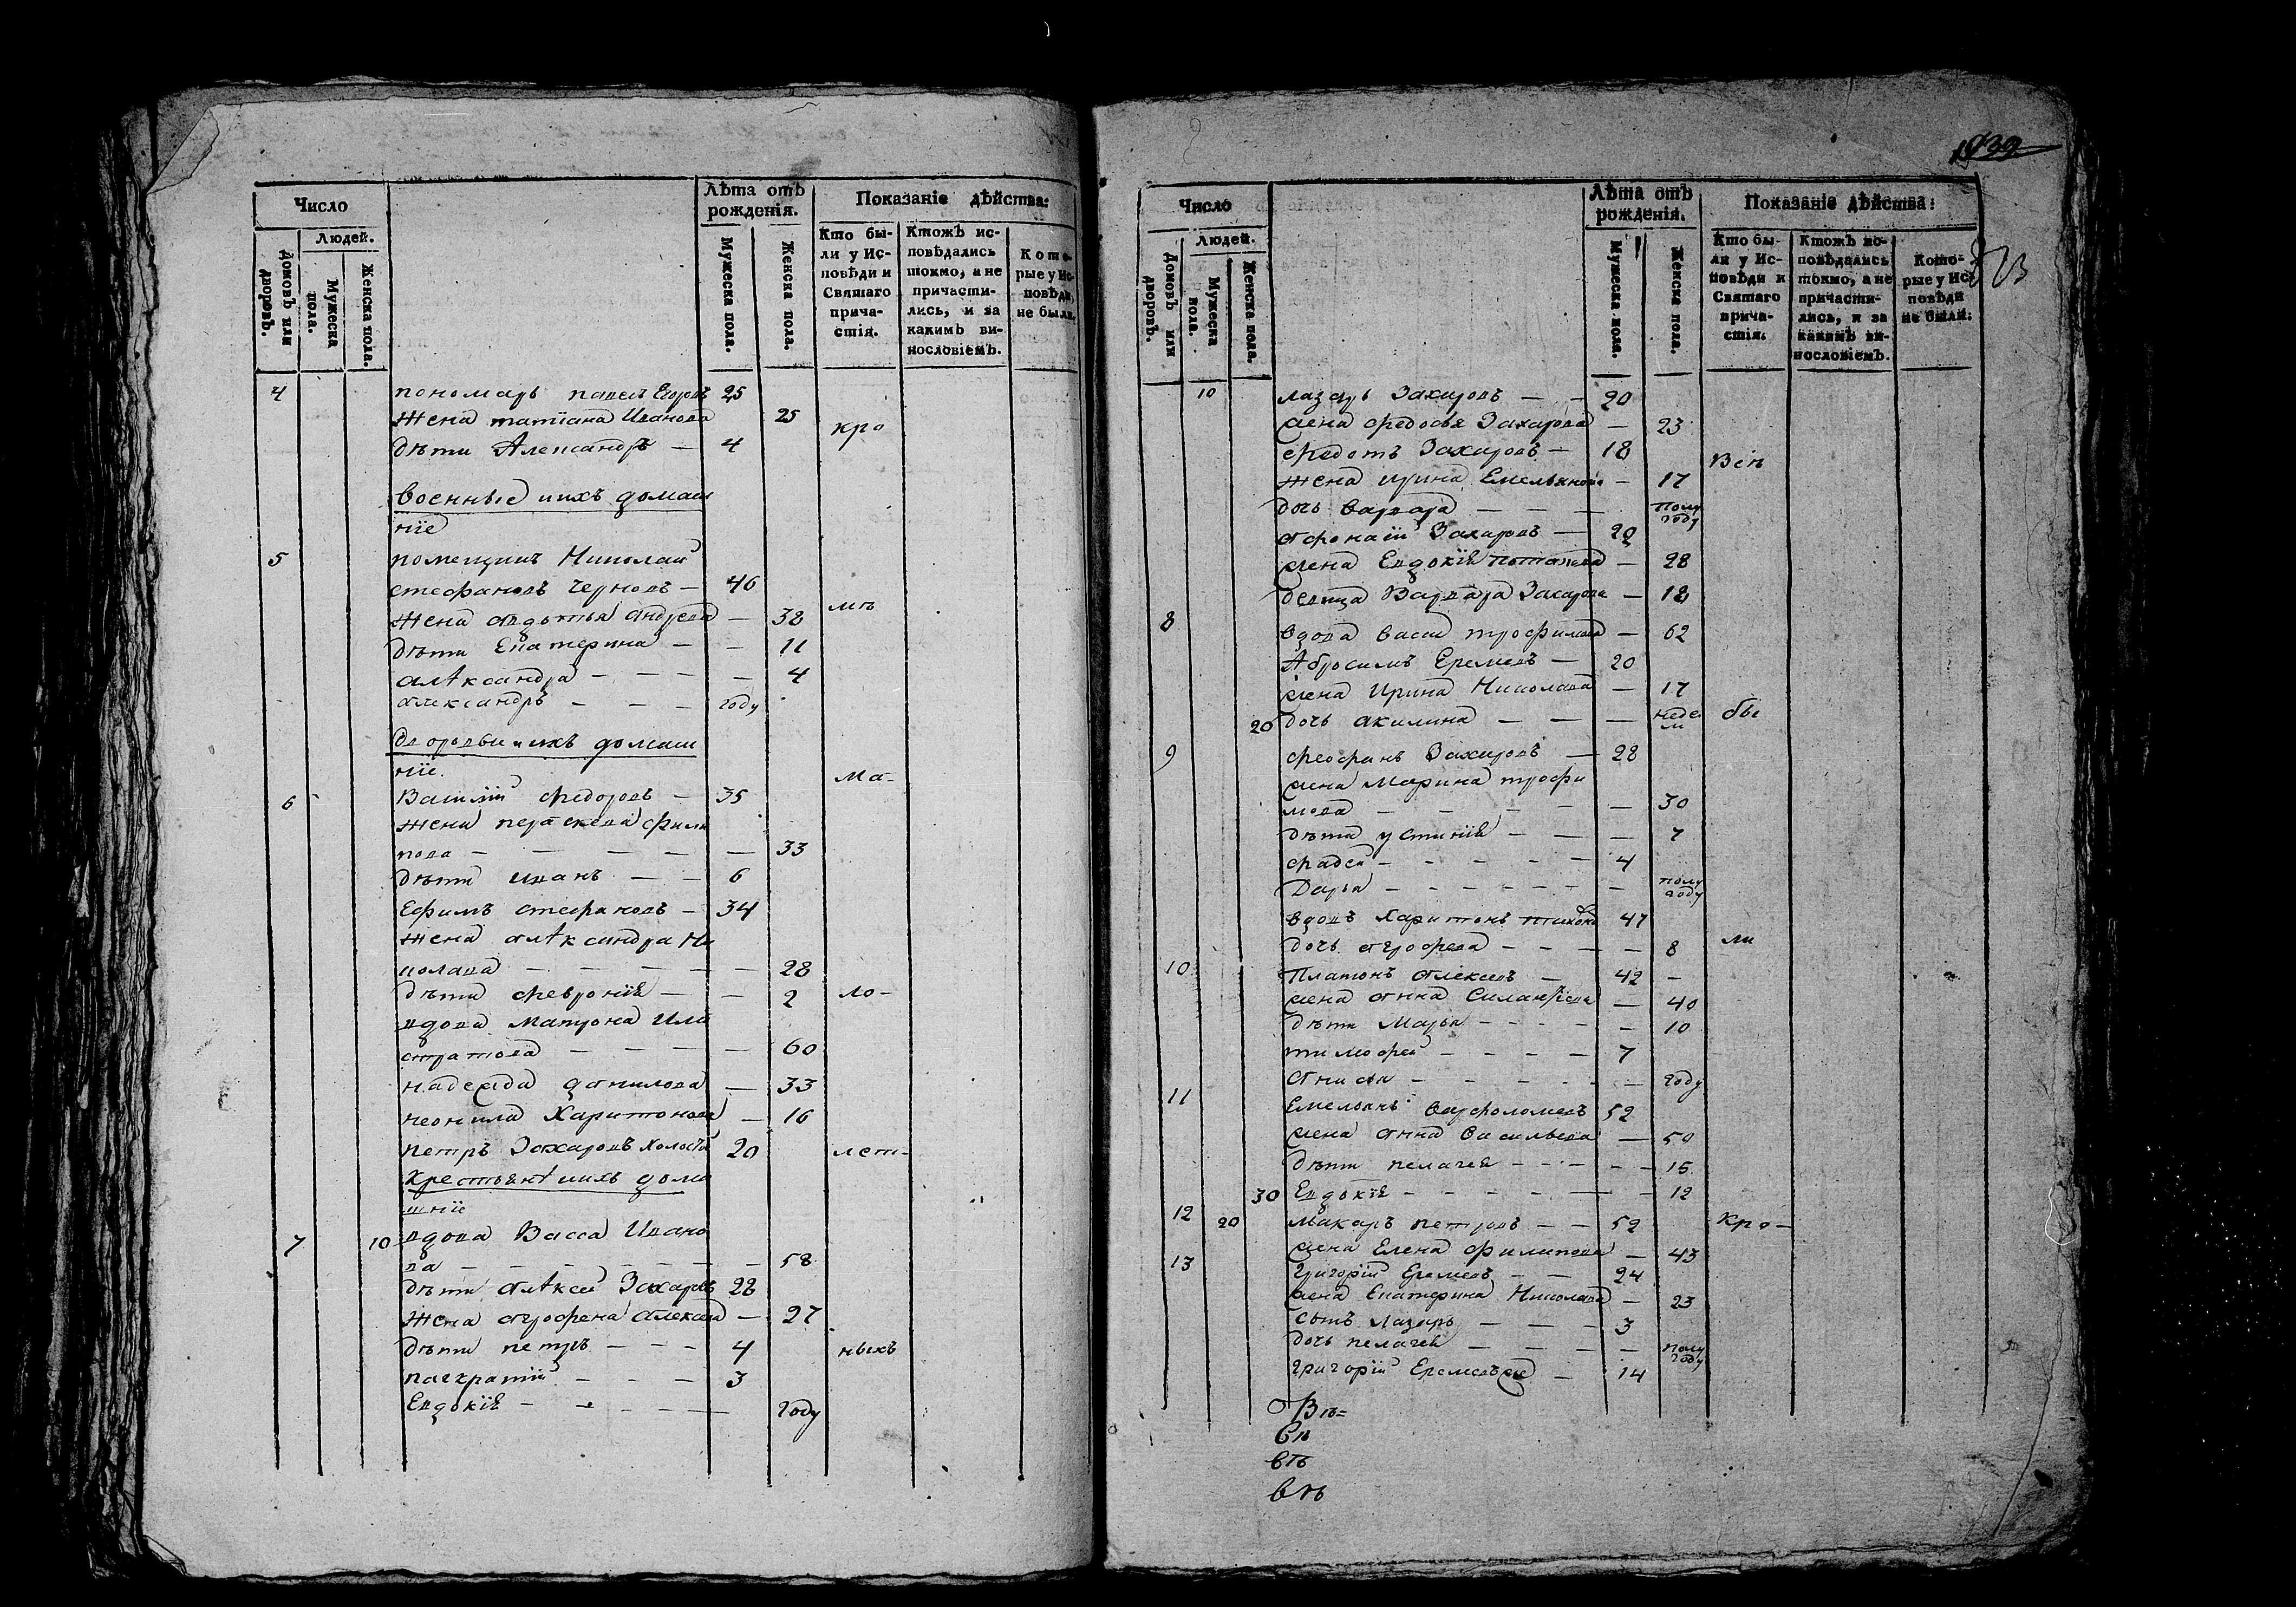 Число
Лѣта отъ рожденія.
Показаніе дѣйства:
Людей.
Домовъ или дворовъ.
Мужеска пола.
Женска пола.
Мужеска пола.
Женска пола.
Кто бы-
ли у Ис-
повѣди и
Святаго
прича-
стія.
Ктожъ ис-
повѣдались
токмо, а не
причасти-
лись, и за
какимъ ви-
нословіемъ.
Кото-
рые у Ис-
повѣди
не были.
4 пономарь павелъ Егоровъ 25
жена татіана Иванова 25
кро
дѣти Александръ — 4
военные ихъ домаш
ніе
5 помещикъ Николай
стефановъ Черновъ — 46
мѣ
жена авдотья андреева — 38
дѣти Екатерина — — 11
александра — — — 4
александръ — — — году
дворовыи ихъ домаш
ніе.
ма-
6 Василій федоровъ — 35
жена параскева фили
пова — — — — — 33
дѣти иванъ — — 6
Ефимъ стефановъ — 34
жена александра Ни
колаева — — — — — 28
дѣти февронія — — 2 ло-
вдова матрона
стратова — — — — 60
надежда данилова — 33
неонила Харитонова — 16
петръ Захаровъ холостъ 20 лет-
крестьяне ихъ дома
шніе
7 10 вдова Васса Ивано
ва — — — — — — 58
дѣти алексей Захаровъ 28
жена агрофена алексеева — 27
дѣти петръ — — — 4 ныхъ
панкратій — — — 3
Евдокія — — — — — году
1839
Число
Лѣта отъ рожденія.
Показаніе дѣйства:
Людей.
Домовъ или дворовъ.
Мужеска пола.
Женска пола.
Мужеска пола.
Женска пола.
Кто бы-
ли у Ис-
повѣди и
Святаго
прича-
стія.
Ктожъ ис-
повѣдались
токмо, а не
причасти-
лись, и за
какимъ ви-
нословіемъ.
Кото-
рые у Ис-
повѣди
не были:
10 лазарь Захаровъ — — 20
жена федосья Захарова — 23
федотъ Захаровъ — 18
Всѣ
жена ирина Емельянова — 17
дочь варвара — — — полу
году
афонасій Захаровъ — 20
жена Евдокія потапова — 28
девица Варвара Захарова — 18
8 вдова васи трофимова — 62
Абросимъ Еремеевъ — 20
жена Ирина Николаева — 17
20 дочь акилина — — — неде
ли бы
9 феофанъ Захаровъ — 28
жена Марина трофи
мова — — — — — 30
дѣти устинія — — — 7
фадей — — — — — 4
Дарья — — — — — — — полу
году
вдовъ Харитонъ тихоновъ 47
дочь агрофена — — — — 8 ли
10 Платонъ алексеевъ — 42 —
жена анна Силантіева — 40
дѣти Марья — — — — — 10
тимофей — — — — 7
анисья — — — — — — году
11 Емельянъ варфоломеевъ 52
жена анна васильева — 50
дѣти пелагея — — — — — 15
30 Евдокія — — — — — — 12
12 20 Макаръ петровъ — — 52 кро-
жена Елена филипова — 43
13 Григорій Еремеевъ — — 24
жена Екатерина Николаева — 23
сынъ Лазарь — — — 3
дочь пелагея — — — — полу
году
григорій Еремеевъ же — 14